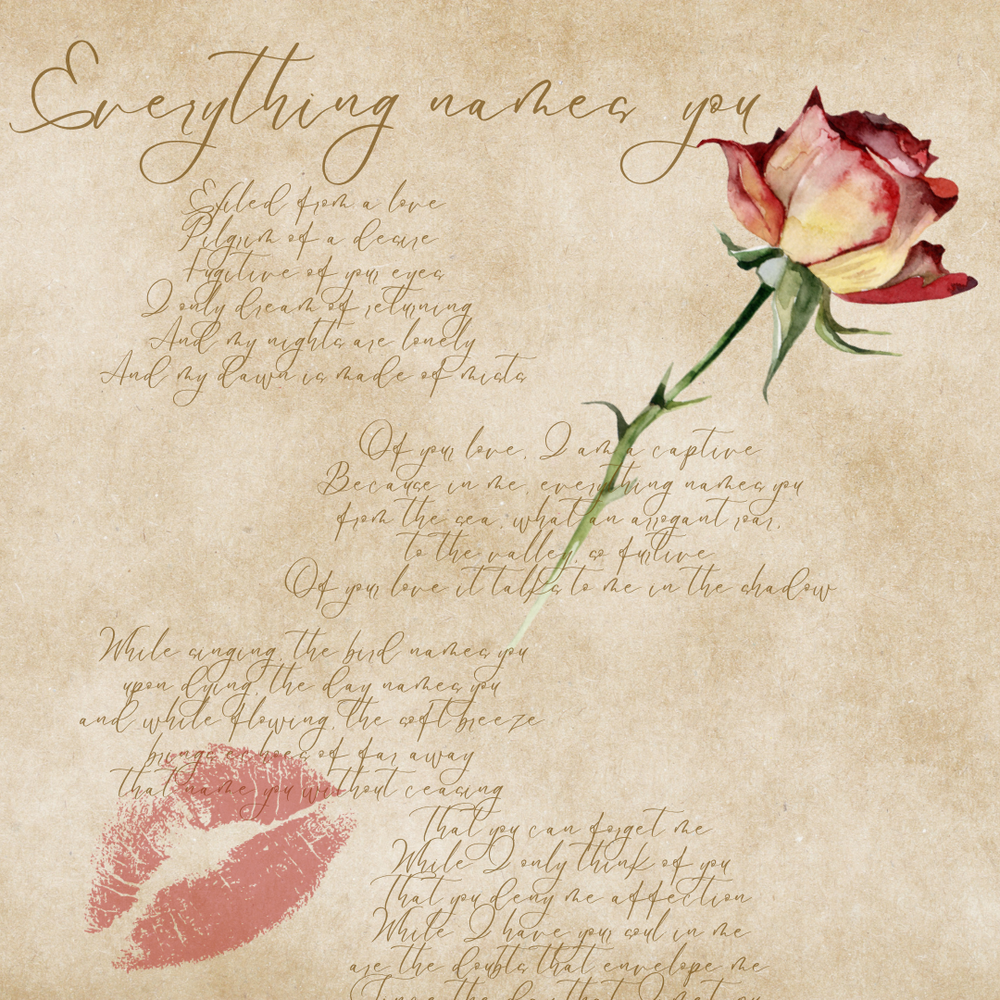 Everything names you
Exiled from a love
Pilgrim of a desire
Fugitive of your eyes
I only dream of returning
And my nights are lonely
And my dawn is made of mists
Of your love, I am a captive
Because in me, everything names you
from the sea, what an arrogant roar,
to the valley, so furtive
Of your love it talks to me in the shadow
While singing, the bird names you
upon dying, the day names you
and while flowing, the soft breeze
brings echoes of far away
that name you without ceasing
That you can forget me
While I only think of you
That you deny me affection
While I have your soul in me
are the doubts that envelope me
Since the day that I met you